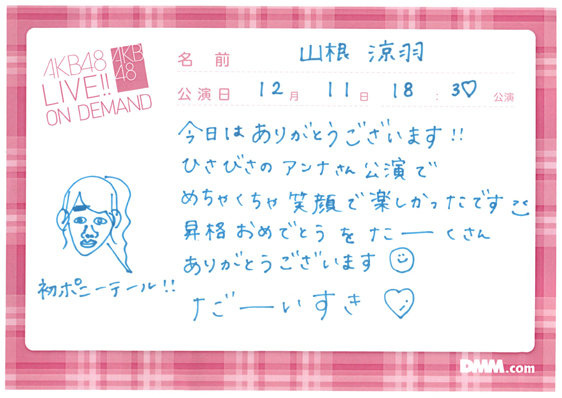 AKB48
LIVE!!
ON DEMAND
AKB
48
名前 山根 涼羽
公演日 12月 11日 18:30 公演
今日はありがとうございます!!
ひさびさのアンナさん公演で
めちゃくちゃ笑顔で楽しかったです
昇格おめでとうをたーーくさん
ありがとうございます
だーーいすき
初ポニーテール!!
DMM.com